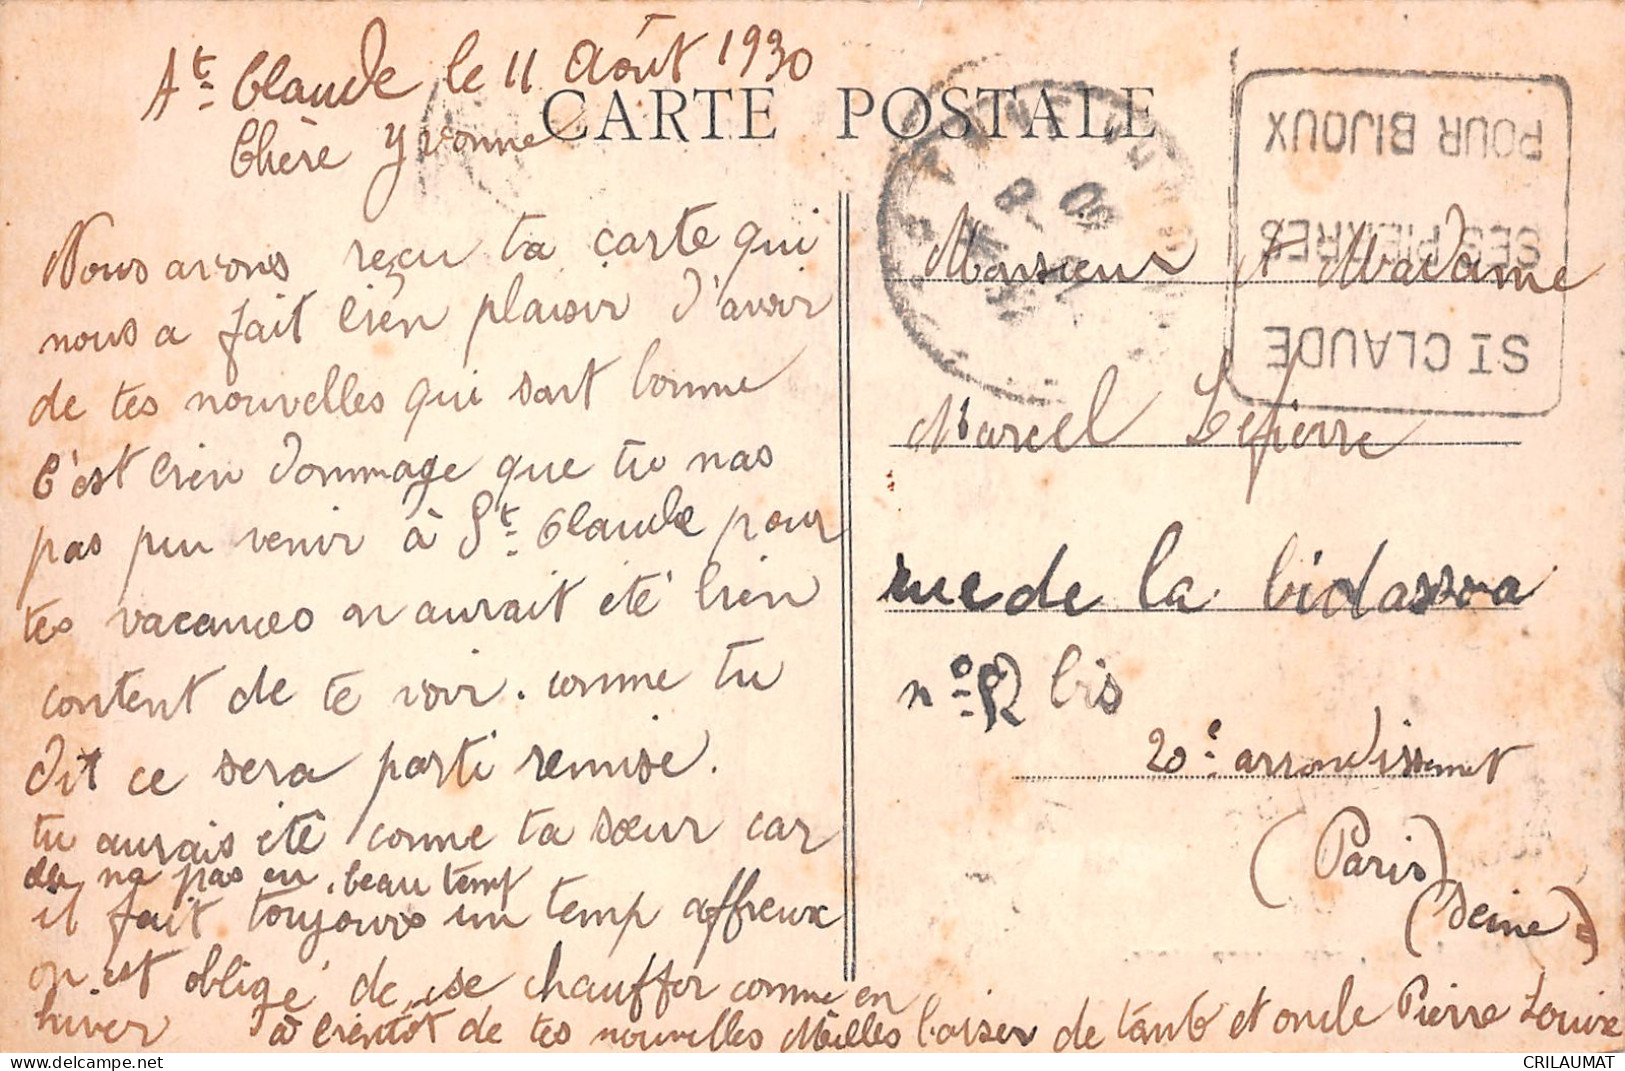 St Claude le 11 Août 1930
Chère Yvonne
CARTE POSTALE
Nous avons reçu ta carte qui
nous a fait bien plaisir d'avoir
de tes nouvelles qui sont bonne
C'est bien dommage que tu nas
pas pu venir à St Claude pour
tes vacances on aurait été bien
content de te voir. comme tu
dit ce sera parti remise.
tu aurais été comme ta sœur car
na pas eu beau temp
il fait toujours un temp affreux
on est obligé de se chauffer comme en
hiver à bientôt de tes nouvelles Milles baiser de tante et oncle Pierre Louise
ST CLAUDE
SES PIERRES
POUR BIJOUX
Monsieur et Madame
Marcel Lefierre
rue de la bidassoa
n° 12 bis
20e arrondissement
(Paris)
(Seine)
CRILAUMAT